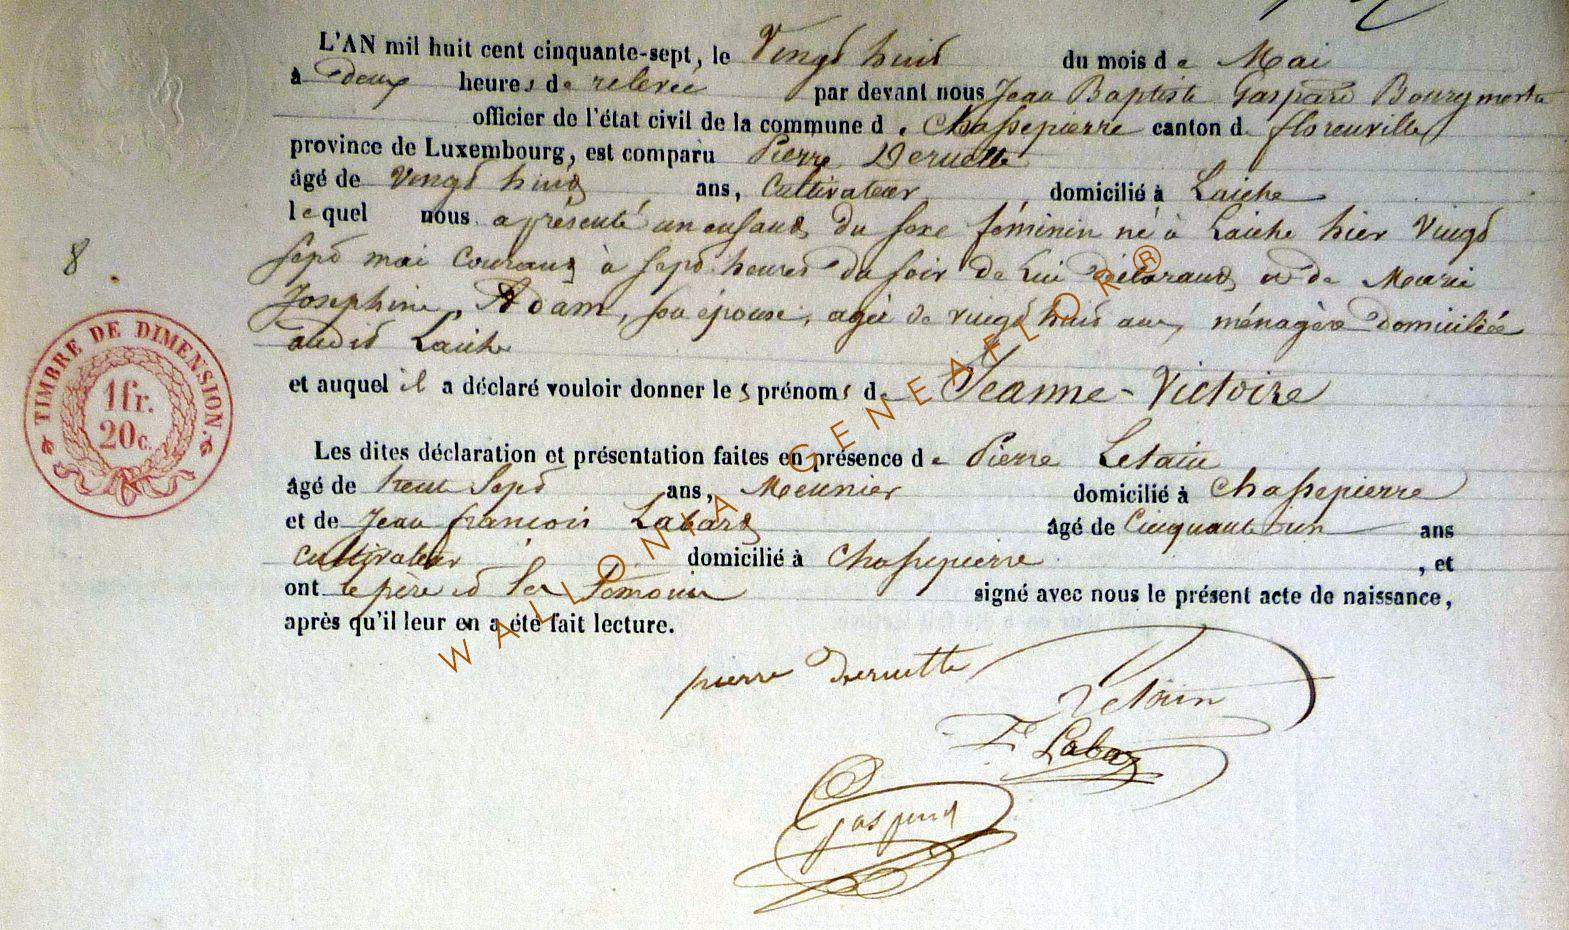 L'AN mil huit cent cinquante-sept, le Vingt huit du mois de Mai
à deux heures de relevée par devant nous Jean Baptiste Gaspard Bourgmestre
officier de l'état civil de la commune de Chassepierre canton de florenville
province de Luxembourg, est comparu Pierre Deruette
âgé de Vingt huit ans, Cultivateur domicilié à Laiche
lequel nous a présenté un enfant du sexe féminin né à Laiche hier Vingt
8
sept mai Courant à sept heures du soir de Lui déclarant et de Marie
Josephine Adam, son épouse, agée de vingt huit ans, ménagère domiciliée
audit Laiche
TIMBRE DE DIMENSION.
1fr.
20c.
et auquel il a déclaré vouloir donner les prénoms de Jeanne-Victoire
Les dites déclaration et présentation faites en présence de Pierre Letain
âgé de trente Sept ans, Meunier domicilié à Chassepierre
et de Jean françois Labart âgé de Cinquante un ans
Cultivateur domicilié à Chassepierre , et
ont le père et les temoins signé avec nous le présent acte de naissance,
après qu'il leur en a été fait lecture.
WALLONIA GENEAFLOR®
pierre Deruette
Letain
Labart
Gaspard